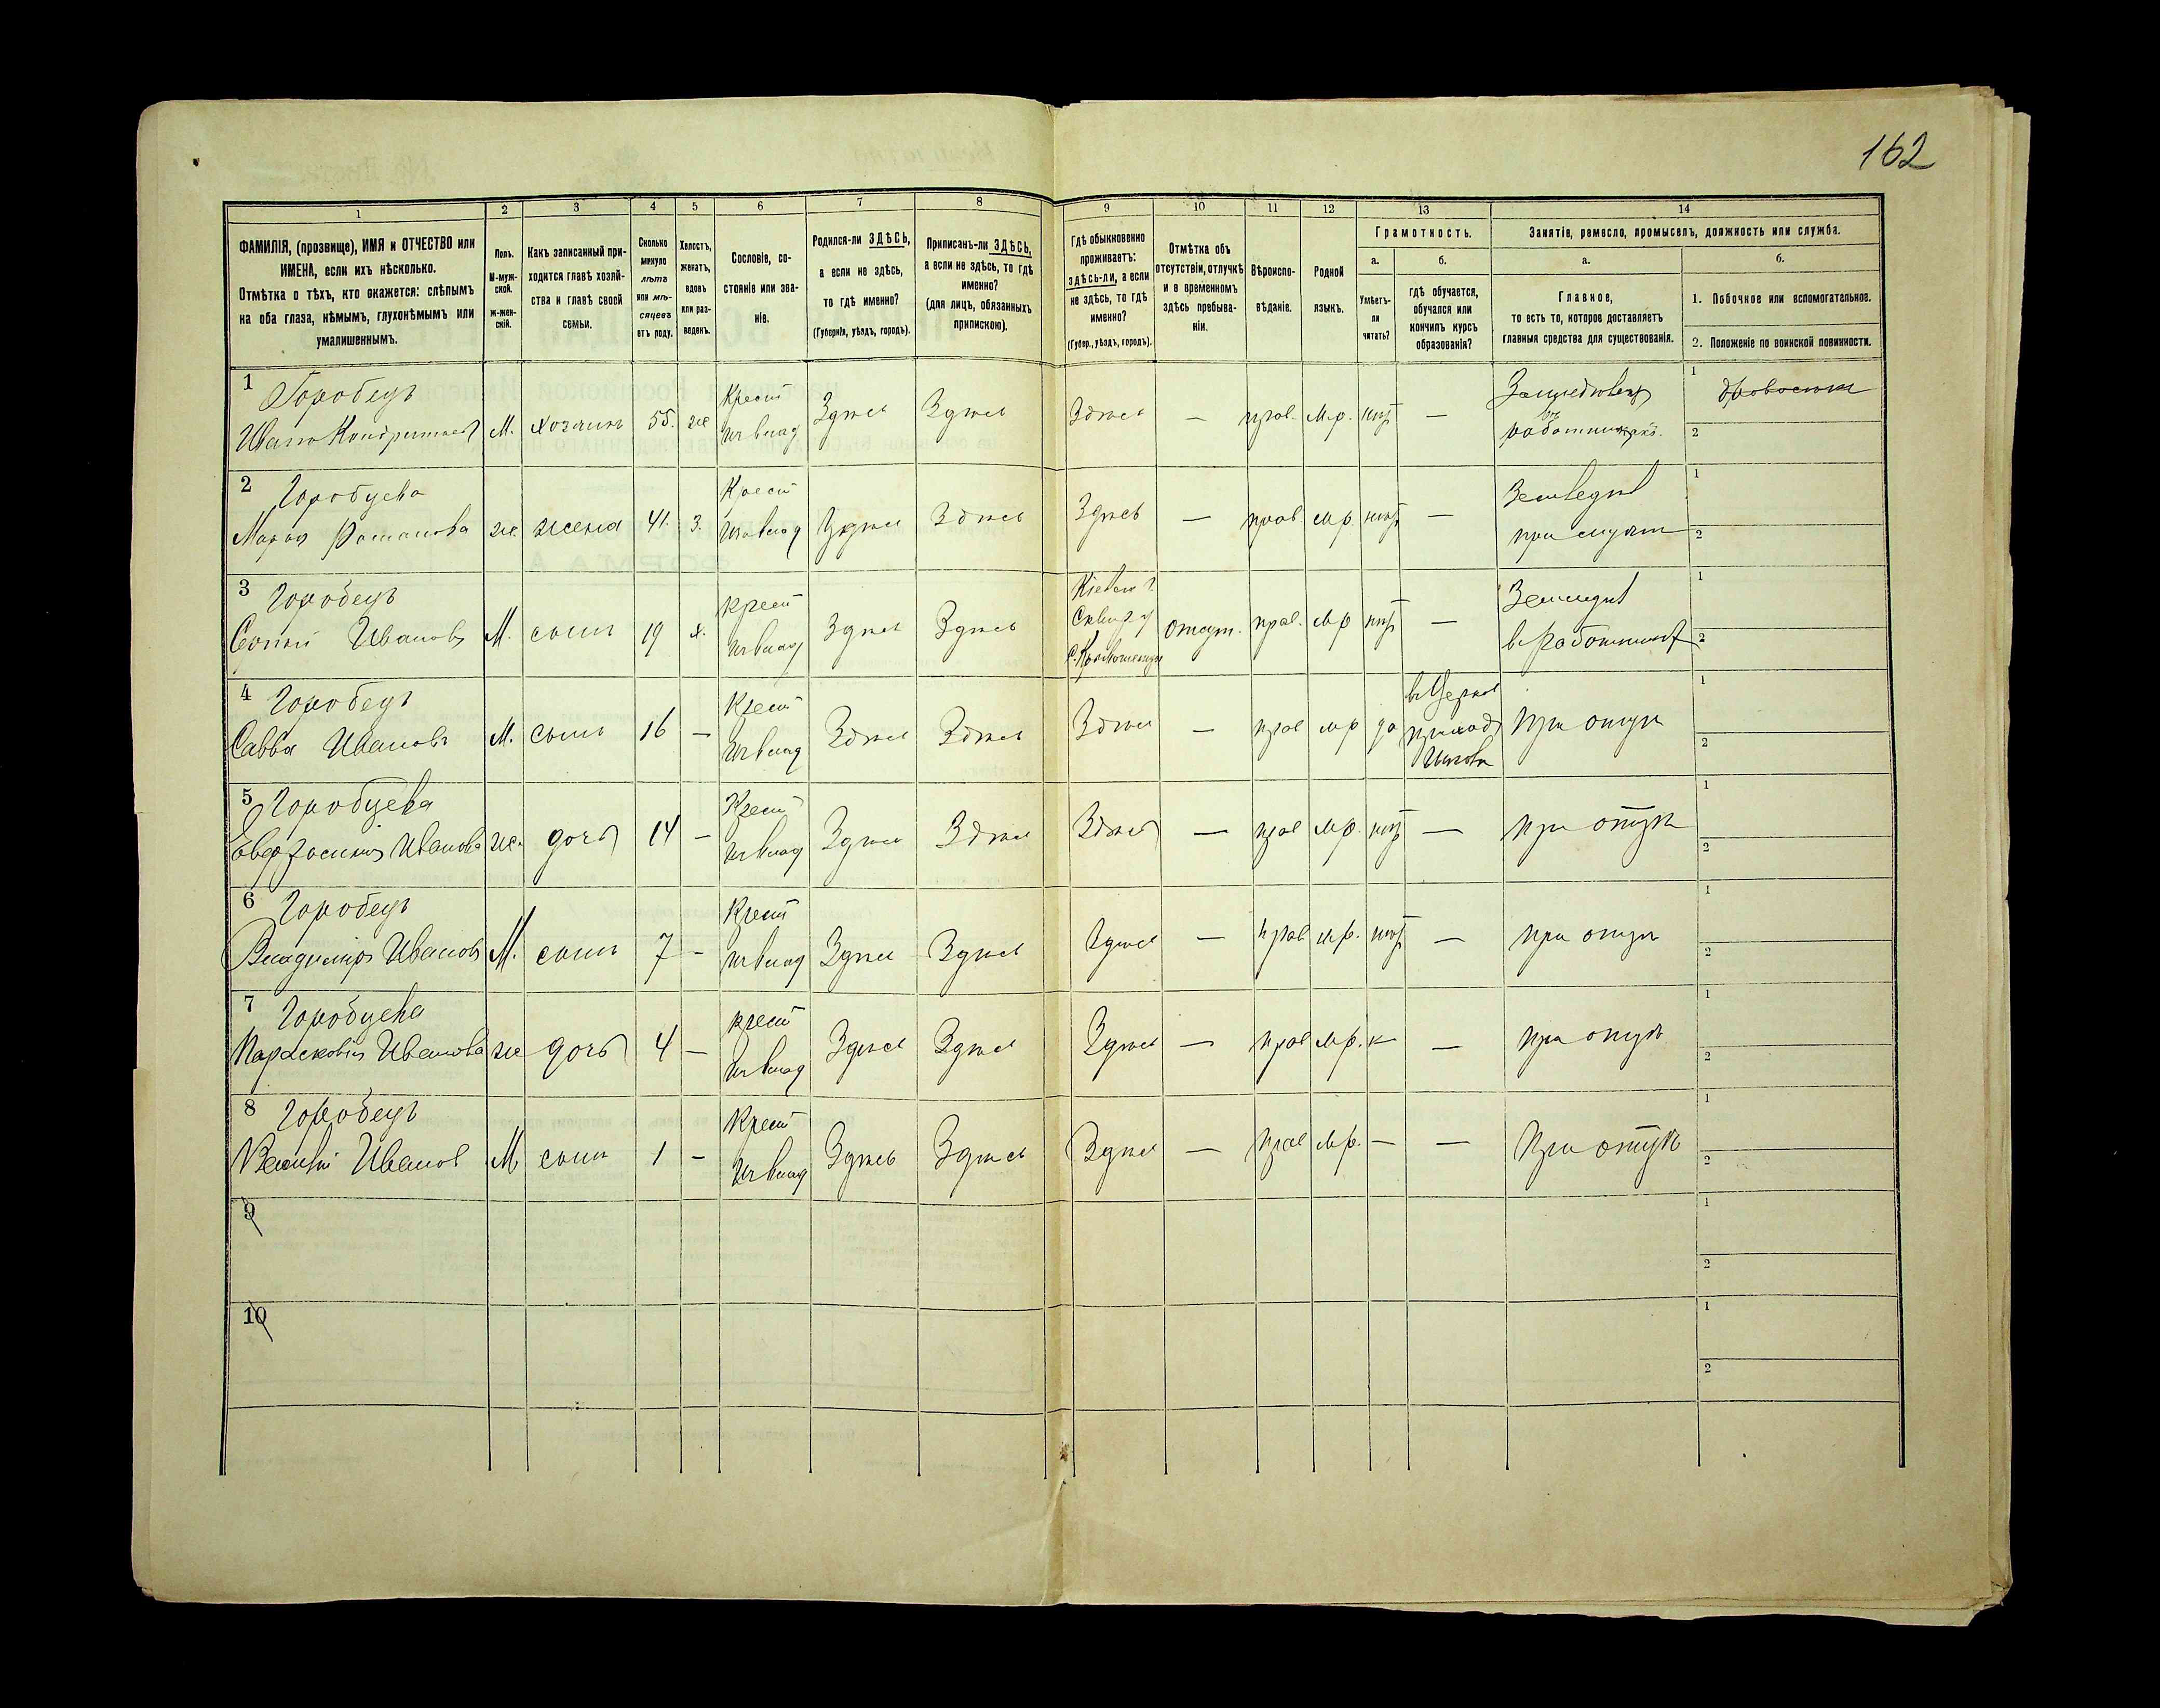 162
1 2 3 4 5 6 7 8 9 10 11 12 13 14
ФАМИЛІЯ, (прозвище), ИМЯ и ОТЧЕСТВО или
ИМЕНА, если ихъ нѣсколько.
Отмѣтка о тѣхъ, кто окажется: слѣпымъ
на оба глаза, нѣмымъ, глухонѣмымъ или
умалишеннымъ.
Полъ.
М-муж-
ской.
Ж-жен-
скій.
Какъ записанный при-
ходится главѣ хозяй-
ства и главѣ своей
семьи.
Сколько
минуло
лѣтъ
или мѣ-
сяцевъ
отъ роду.
Холостъ,
женатъ,
вдовъ
или раз-
веденъ.
Сословіе, со-
стояніе или зва-
ніе.
Родился-ли ЗДѢСЬ,
а если не здѣсь,
то гдѣ именно?
(Губернія, уѣздъ, городъ).
Приписанъ-ли ЗДѢСЬ,
а если не здѣсь, то гдѣ
именно?
(для лицъ, обязанныхъ
припискою).
Гдѣ обыкновенно
проживаетъ:
здѣсь-ли, а если
не здѣсь, то гдѣ
именно?
(Губер., уѣздъ, городъ).
Отмѣтка объ
отсутствіи, отлучкѣ
и о временномъ
здѣсь пребыва-
ніи.
Вѣроиспо-
вѣданіе.
Родной
языкъ.
Грамотность.
а.
Умѣетъ-
ли
читать?
б.
гдѣ обучается,
обучался или
кончилъ курсъ
образованія?
Занятіе, ремесло, промыселъ, должность или служба.
а.
Главное,
то есть то, которое доставляетъ
главныя средства для существованія.
б.
1. Побочное или вспомогательное.
2. Положеніе по воинской повинности.
1 Горобецъ
Иванъ Кондратьевъ М. хозяинъ 55. же Крест Здѣсь Здѣсь Здѣсь — прав. м.р. нѣт —
1
2
2 Горобцева
Марія Романова же. жена 41. З. Крест Здѣсь Здѣсь Здѣсь — прав. м.р. нѣт —
1
2
3 Горобецъ
Сергѣй Ивановъ М. сынъ 19 х. крест Здѣсь Здѣсь отсут. прав. м.р нѣт —
1
2
4 Горобецъ
Савва Ивановъ М. сынъ 16 — Крест Здѣсь Здѣсь Здѣсь — прав м.р да При отцѣ
1
2
5 Горобцева
Евфросинія Иванова же. дочь 14 — Крест Здѣсь Здѣсь Здѣсь — прав м.р. нѣт — при отцѣ
1
2
6 Горобецъ
Владиміръ Ивановъ М. сынъ 7 — Крест Здѣсь Здѣсь Здѣсь — прав м.р. нѣт — при отцѣ
1
2
7 Горобцева
Парасковія Иванова же дочь 4 — крест Здѣсь Здѣсь Здѣсь — прав м.р. — при отцѣ
1
2
8 Горобецъ
Василій Иванов М. сынъ 1 — Крест Здѣсь Здѣсь Здѣсь — прав м.р. — — При отцѣ
1
2
9
1
2
10
1
2